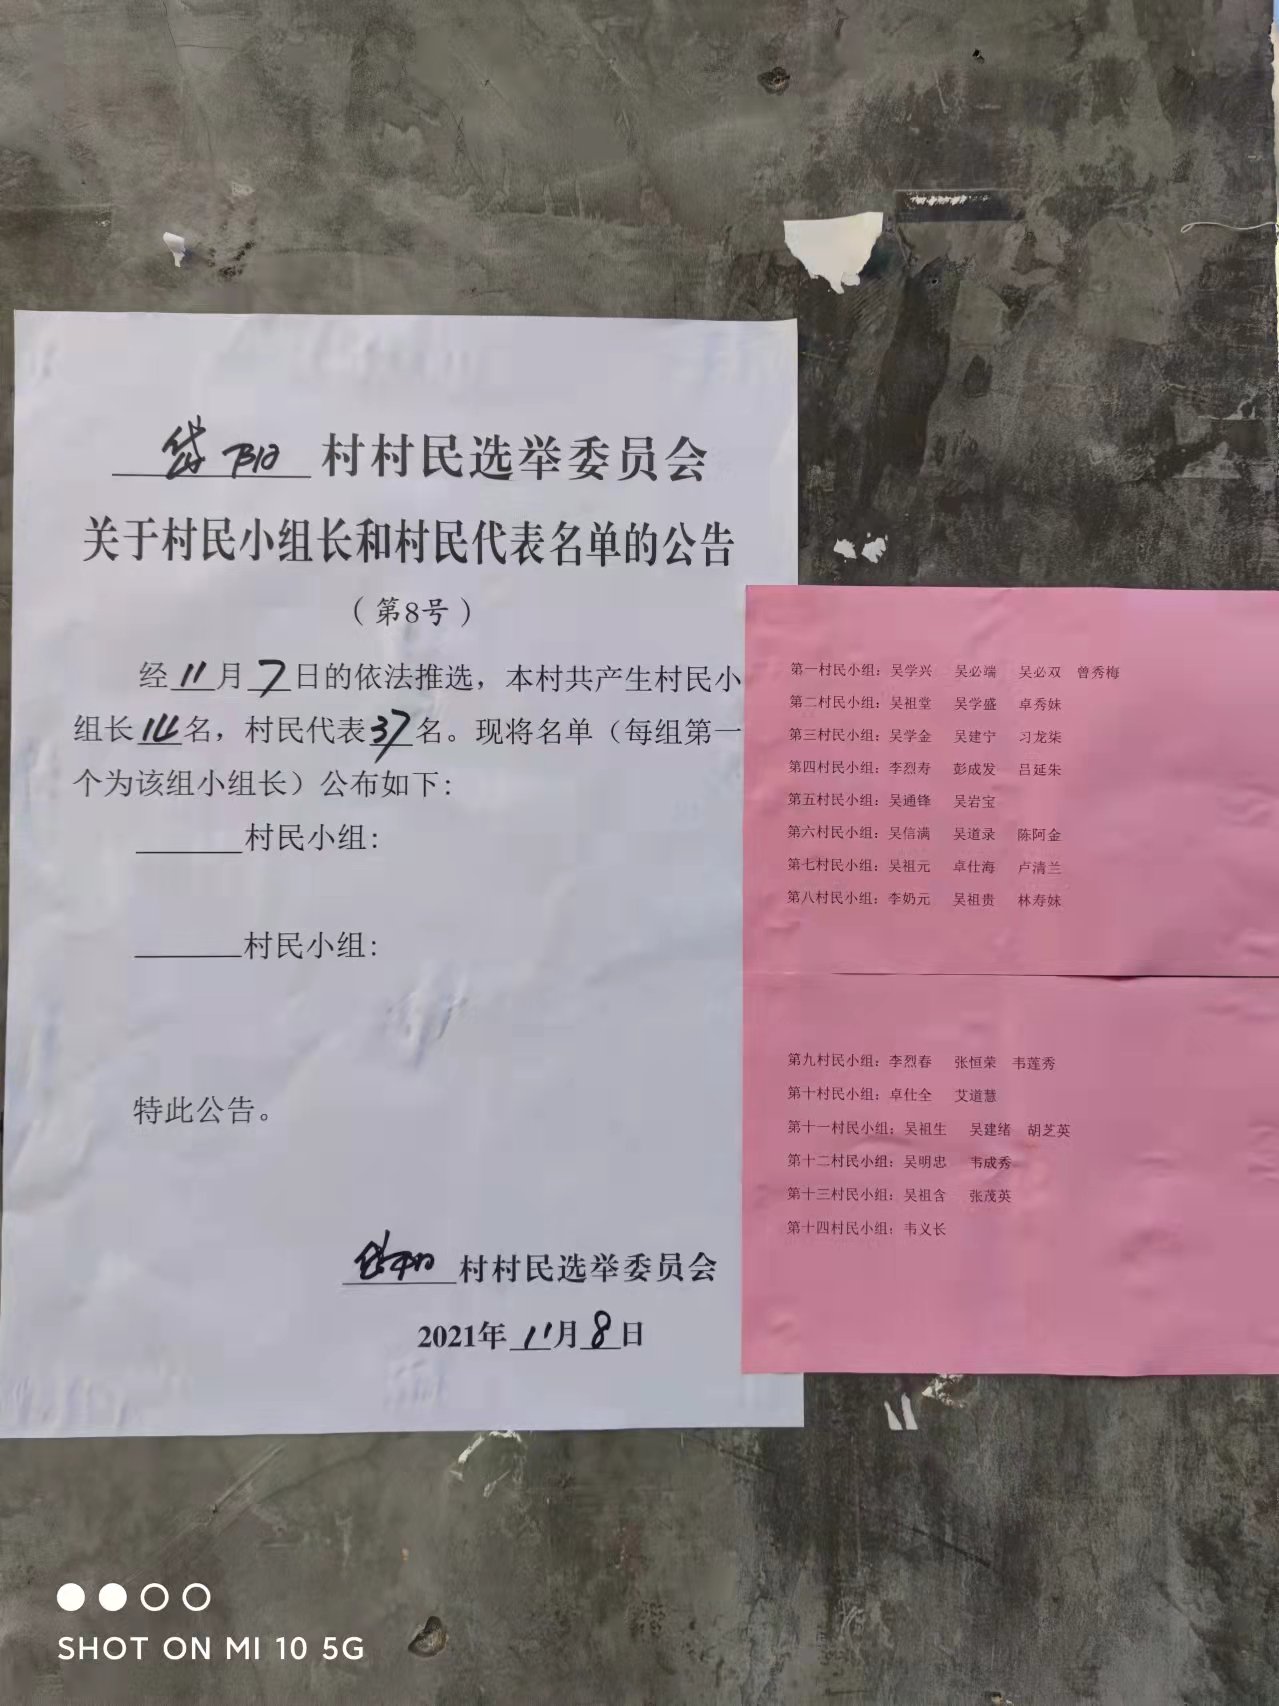 岱阳村村民选举委员会
关于村民小组长和村民代表名单的公告
（第8号）
经11月7日的依法推选，本村共产生村民小
组长14名，村民代表37名。现将名单（每组第一
个为该组小组长）公布如下：
村民小组：
村民小组：
特此公告。
岱阳村村民选举委员会
2021年11月8日
第一村民小组：吴学兴 吴必端 吴必双 曾秀梅
第二村民小组：吴祖堂 吴学盛 卓秀妹
第三村民小组：吴学金 吴建宁 习龙柒
第四村民小组：李烈寿 彭成发 吕延朱
第五村民小组：吴通锋 吴岩宝
第六村民小组：吴信满 吴道录 陈阿金
第七村民小组：吴祖元 卓仕海 卢清兰
第八村民小组：李奶元 吴祖贵 林寿妹
第九村民小组：李烈春 张恒荣 韦莲秀
第十村民小组：卓仕全 艾道慧
第十一村民小组：吴祖生 吴建绪 胡芝英
第十二村民小组：吴明忠 韦成秀
第十三村民小组：吴祖含 张茂英
第十四村民小组：韦义长
SHOT ON MI 10 5G